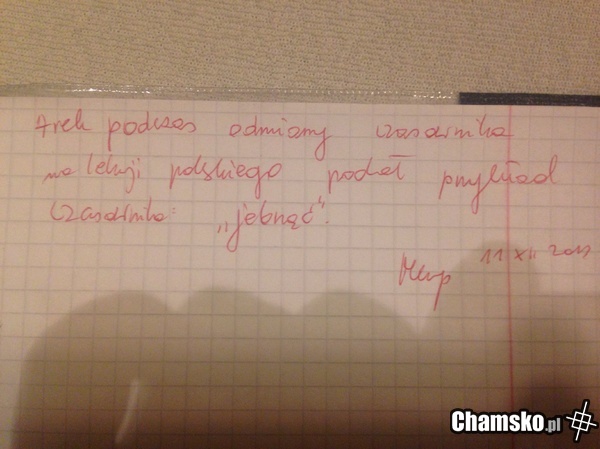 Arek podczas odmiany czasownika
na lekcji polskiego podał przykład
czasownika: „jebnąć".
11 XII
Chamsko.pl